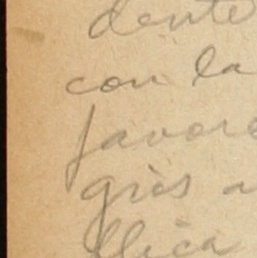 dente
con la
favore
gris a
llica